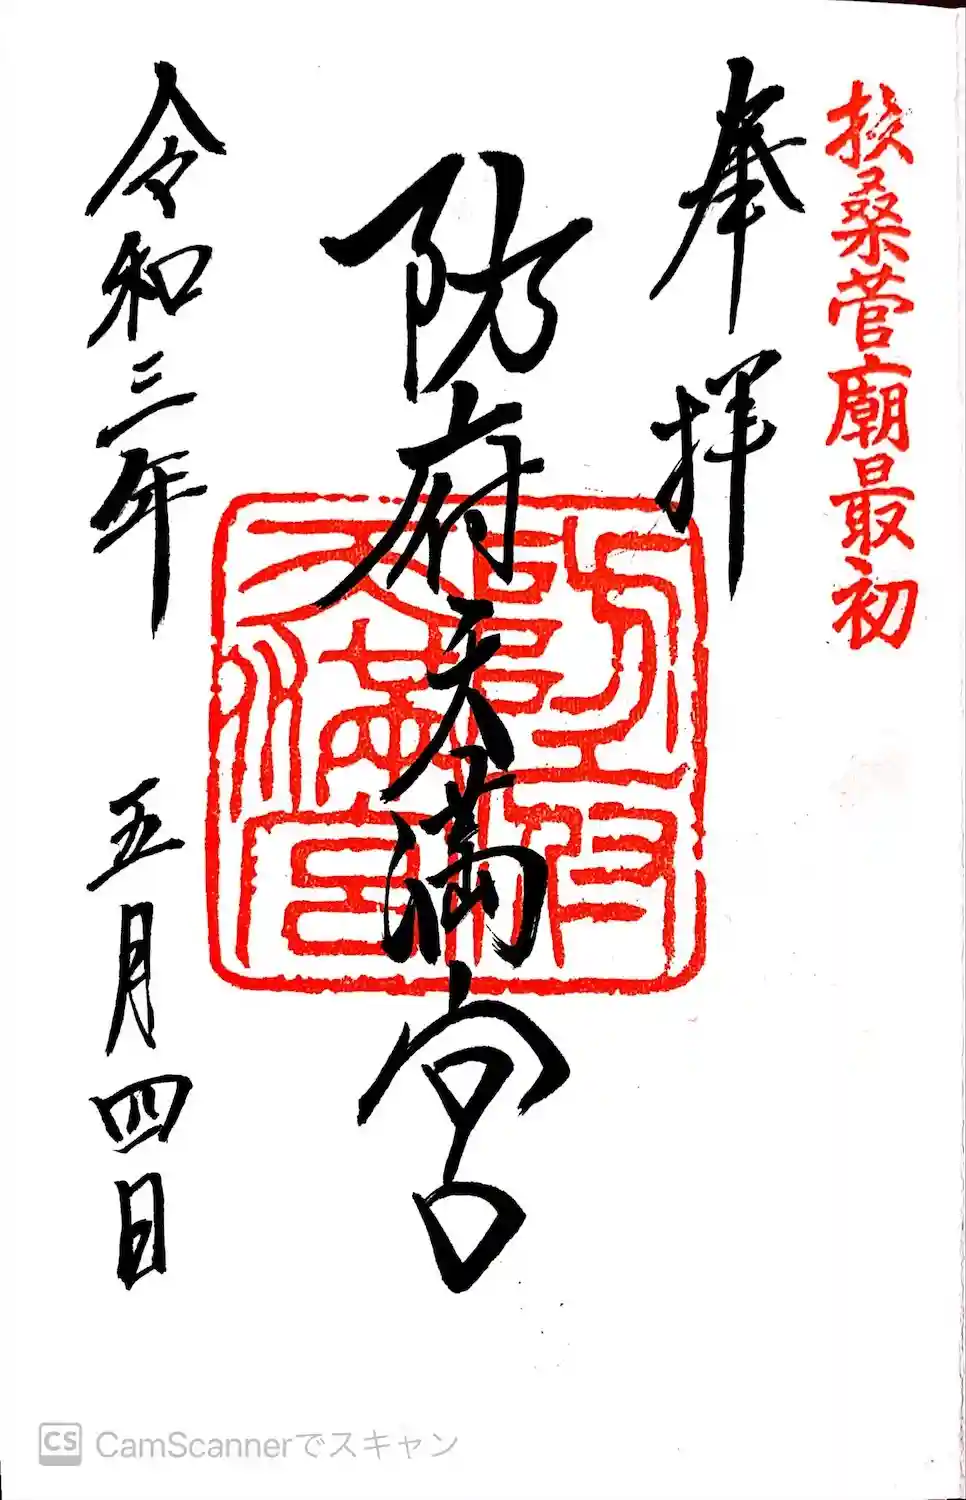 扶桑菅廟最初
奉拝
防府天満宮
令和三年 五月四日
CS CamScannerでスキャン